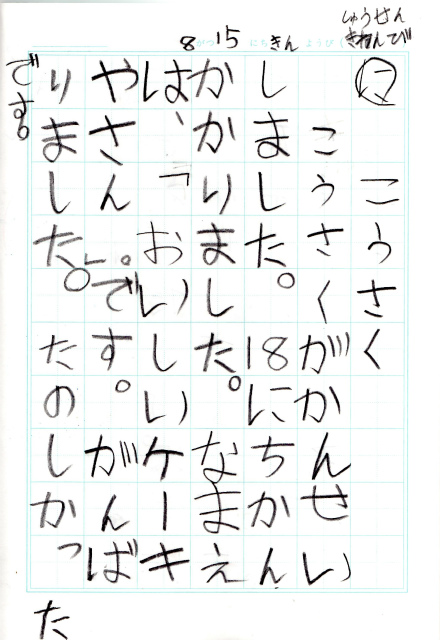 しゅうせん
きねんび
8がつ15にちきんようび(
に
こうさく
こうさくがかんせい
しました。18にちかん
かかりました。なまえ
は、「おいしいケーキ
やさん」。です。がんば
りました。たのしかった
です。